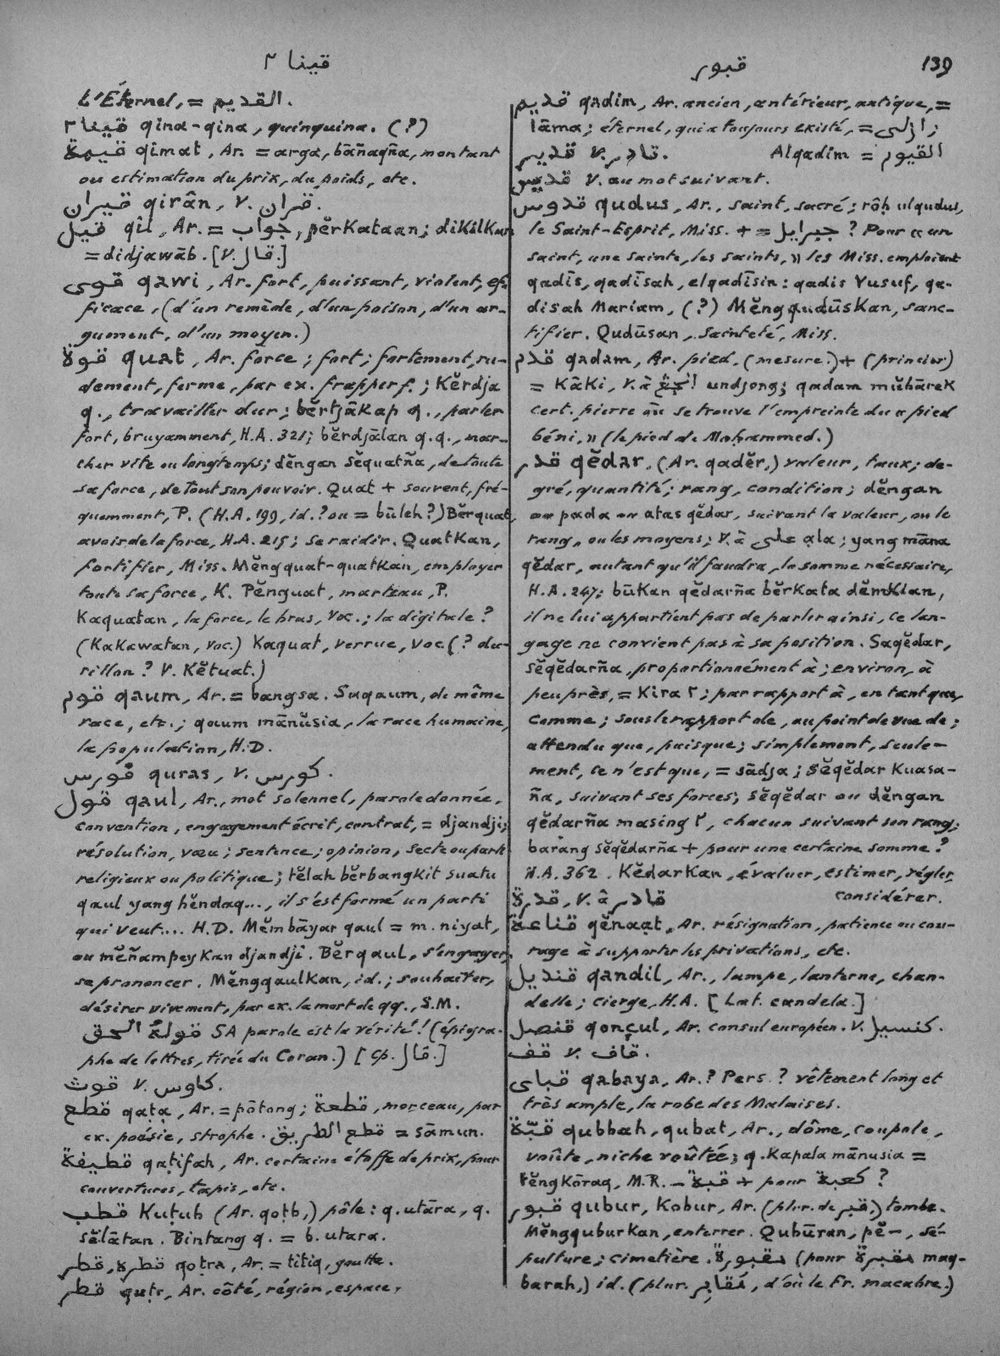 قينا ٢
قبور
139
L'Éternel, = القديم.
قينا ٢ qina-qina, quinquina. (?)
قيمة qimat, Ar. = arga, bāñaqña, montant
ou estimation du prix, du poids, etc.
قيران qirân, V. قران.
قيل qil, Ar. = جواب, pĕrkataan; dikilkan
= didjawāb. [V. قال.]
قوى qawi, Ar. fort, puissant, violent, ef-
ficace, (d'un remède, d'un poison, d'un ar-
gument, d'un moyen.)
قوة quat, Ar. force; fort; fortement, ru-
dement, ferme, par ex. frapper f.; Kĕrdja
q., travailler dur; bĕrtjākap q., parler
fort, bruyamment, H.A. 321; bĕrdjālan q.q., mar-
cher vite ou longtemps; dĕngan sĕquatña, de toute
sa force, de tout son pouvoir. Quat + souvent, fré-
quemment, P. (H.A. 199, id.? ou = būleh?) Bĕrquat,
avoir de la force, H.A. 215; se raidir. Quatkan,
fortifier, Miss. Mĕngquat-quatkan, employer
toute sa force, K. Pĕnguat, marteau, P.
Kaquatan, la force, le bras, Voc.; la digitale?
(Kakawatan, Voc.) Kaquat, verrue, Voc. (? du-
rillon? V. Kĕtuat.)
قوم qaum, Ar. = bangsa. Suqaum, de même
race, etc.; qaum mānŭsia, la race humaine,
la population, H.D.
قورس quras, V. كورس.
قول qaul, Ar., mot solennel, parole donnée,
convention, engagement écrit, contrat, = djandji;
résolution, vœu; sentence; opinion, secte ou parti
religieux ou politique; tĕlah bĕrbangkit suatu
qaul yang hĕndaq..., il s'est formé un parti
qui veut... H.D. Mĕmbāyar qaul = m. niyat,
ou mĕñampeykan djandji. Bĕrqaul, s'engager,
se prononcer. Mĕngqaulkan, id.; souhaiter,
désirer vivement, par ex. la mort de qq., S.M.
قولهُ الحق SA parole est la vérité! (épigra-
phe de lettres, tirée du Coran.) [Cp. قال.]
قوث V. كاوس.
قطع qaṭạ, Ar. = pōtong; قطعة, morceau, par
ex. poésie, strophe. قطع الطريق = sāmun.
قطيفة qaṭifah, Ar. certaine étoffe de prix, pour
couvertures, tapis, etc.
قطب Kuṭub (Ar. qoṭb,) pôle: q. utāra, q.
sĕlātan. Bintang q. = b. utara.
قطرة, قطر qoṭra, Ar. = titiq, goutte.
قطر quṭr, Ar. côté, région, espace.
قديم qadim, Ar. ancien, antérieur, antique, =
lāma; éternel, qui a toujours existé, = ازلى;
القيور = Alqadim
قدير V. قادر.
قديس V. au mot suivant.
قدوس qudus, Ar., saint, sacré; rōḥ ulqudus,
le Saint-Esprit, Miss. + = جبرايل? Pour «un
saint, une sainte, les saints,» les Miss. emploient
qadīs, qadīsah, elqadīsin: qadis Yusuf, qa-
disah Mariam, (?) Mĕngqudūskan, sanc-
tifier. Qudūsan, sainteté, Miss.
قدم qadam, Ar. pied, (mesure.) + (princier)
= Kāki, V. à undjong; qadam mŭbārek
cert. pierre où se trouve l'empreinte du «pied
béni,» (le pied de Moḥammed.)
قدر qĕdar, (Ar. qadĕr,) valeur, taux; de-
gré, quantité; rang, condition; dĕngan
ou pada ou atas qĕdar, suivant la valeur, ou le
rang, ou les moyens; V. à على ạla; yang māna
qĕdar, autant qu'il faudra, la somme nécessaire,
H.A. 247; būkan qĕdarña bĕrkata dĕmkian,
il ne lui appartient pas de parler ainsi, ce lan-
gage ne convient pas à sa position. Saqĕdar,
sĕqĕdarña, proportionnément à; environ, à
peu près, = Kira ٢; par rapport à, en tant que,
comme; sous le rapport de, au point de vue de;
attendu que, puisque; simplement, seule-
ment, ce n'est que, = sādja; sĕqĕdar Kuasa-
ña, suivant ses forces; sĕqĕdar ou dĕngan
qĕdarña masing ٢, chacun suivant son rang;
bārang sĕqĕdarña + pour une certaine somme?
H.A. 362. Kĕdarkan, évaluer, estimer, régler,
considérer.
قدرة, V. à قادر
قناعة qĕnaạt, Ar. résignation, patience ou cou-
rage à supporter les privations, etc.
قنديل qandil, Ar., lampe, lanterne, chan-
delle; cierge, H.A. [Lat. candela.]
قنصل qonçul, Ar. consul européen. V. كنسيل.
قف V. قاف.
قباى qabaya, Ar.? Pers.? vêtement long et
très ample, la robe des Malaises.
قبّة qubbah, qubat, Ar., dôme, coupole,
voûte, niche voûtée; q. Kapala mānusia =
tĕngKōraq, M.R. — قبة + pour كعبة?
قبور qubur, Kobur, Ar. (plur. de قبر,) tombe.
Mĕngquburkan, enterrer. Qubūran, pĕ—, sé-
pulture; cimetière. مقبورة (pour مقبرة maq-
barah,) id. (plur. مَقَابِر, d'où le Fr. macabre.)